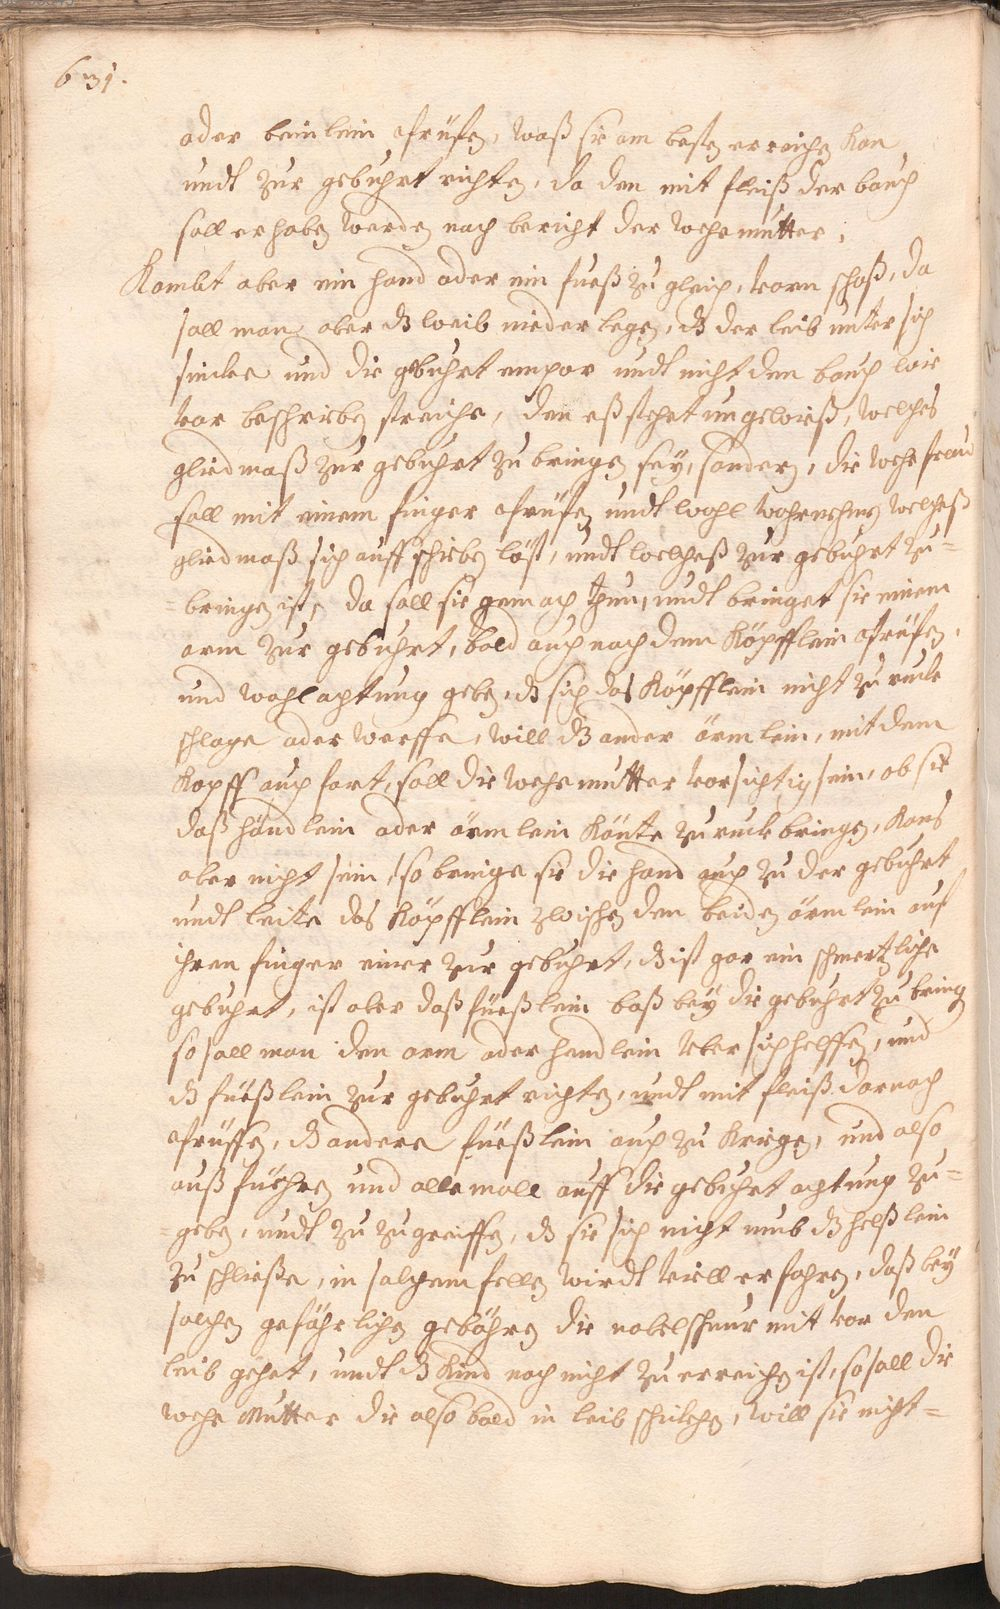 631.
oder beinlein ehrüfen, waß sie am besten erreichen kan
undt zur gebuhrt richten, da den mit fleiß der bauch
soll erhaben werden nach bericht der wehe mutter,
Kombt aber ein hand oder ein fueß zu gleich, vorn schoß, da
soll man aber dß weib nieder legen, dß der leib unter sich
sincke und die gebuhrt empor undt nicht den bauch wie
vor beschrieben streiche, den eß stehet ungewieß, welches
gliedmaß zur gebuhrt zu bringen sey, sondern, die wehe frau
soll mit einem finger ehrüfen undt wohl wahrnehmen welcheß
gliedmaß sich auff schieben löst, undt welcheß zur gebuhrt zu=
=bringen ist, da soll sie gemach thun, undt bringet sie einem
arm zur gebuhrt, bald auch nach dem Köpfflein ehrüfen,
und wohl achtung geben, dß sich das Köpfflein nicht zu rucke
schlage oder werffe, will dß ander ärmlein, mit dem
Kopff auch fort, soll die wehe mutter vorsichtig sein, ob sie
daß händlein oder ärmlein könte zu ruck bringen, kans
aber nicht sein, so bringe sie die hand auch zu der gebuhrt
undt leite das Köpfflein zwischen den beiden ärmlein auf
ihren finger einer zur gebuhrt, dß ist gar ein schmertzliche
gebuhrt, ist aber daß füeßlein baß bey die gebuhrt zu bringen
so soll man den arm oder hendlein uber sich helffen, und
dß füeßlein zur gebuhrt richten, undt mit fleiß darnach
ehrüffen, dß andere füeßlein auch zu kriegen, und also
auß führen und alle mall auff die gebuhrt achtung zu=
=geben, undt zu zugreiffen, dß sie sich nicht umb dß helßlein
zu schließe, in solchem fellen wirdt viell erfahren, daß bey
solchen gefährlichen gebähren die nabelschnur mit vor den
leib gehet, undt dß Kind noch nicht zu erreichen ist, so soll die
wehe Mutter die also bald in leib schieben, will sie nicht=